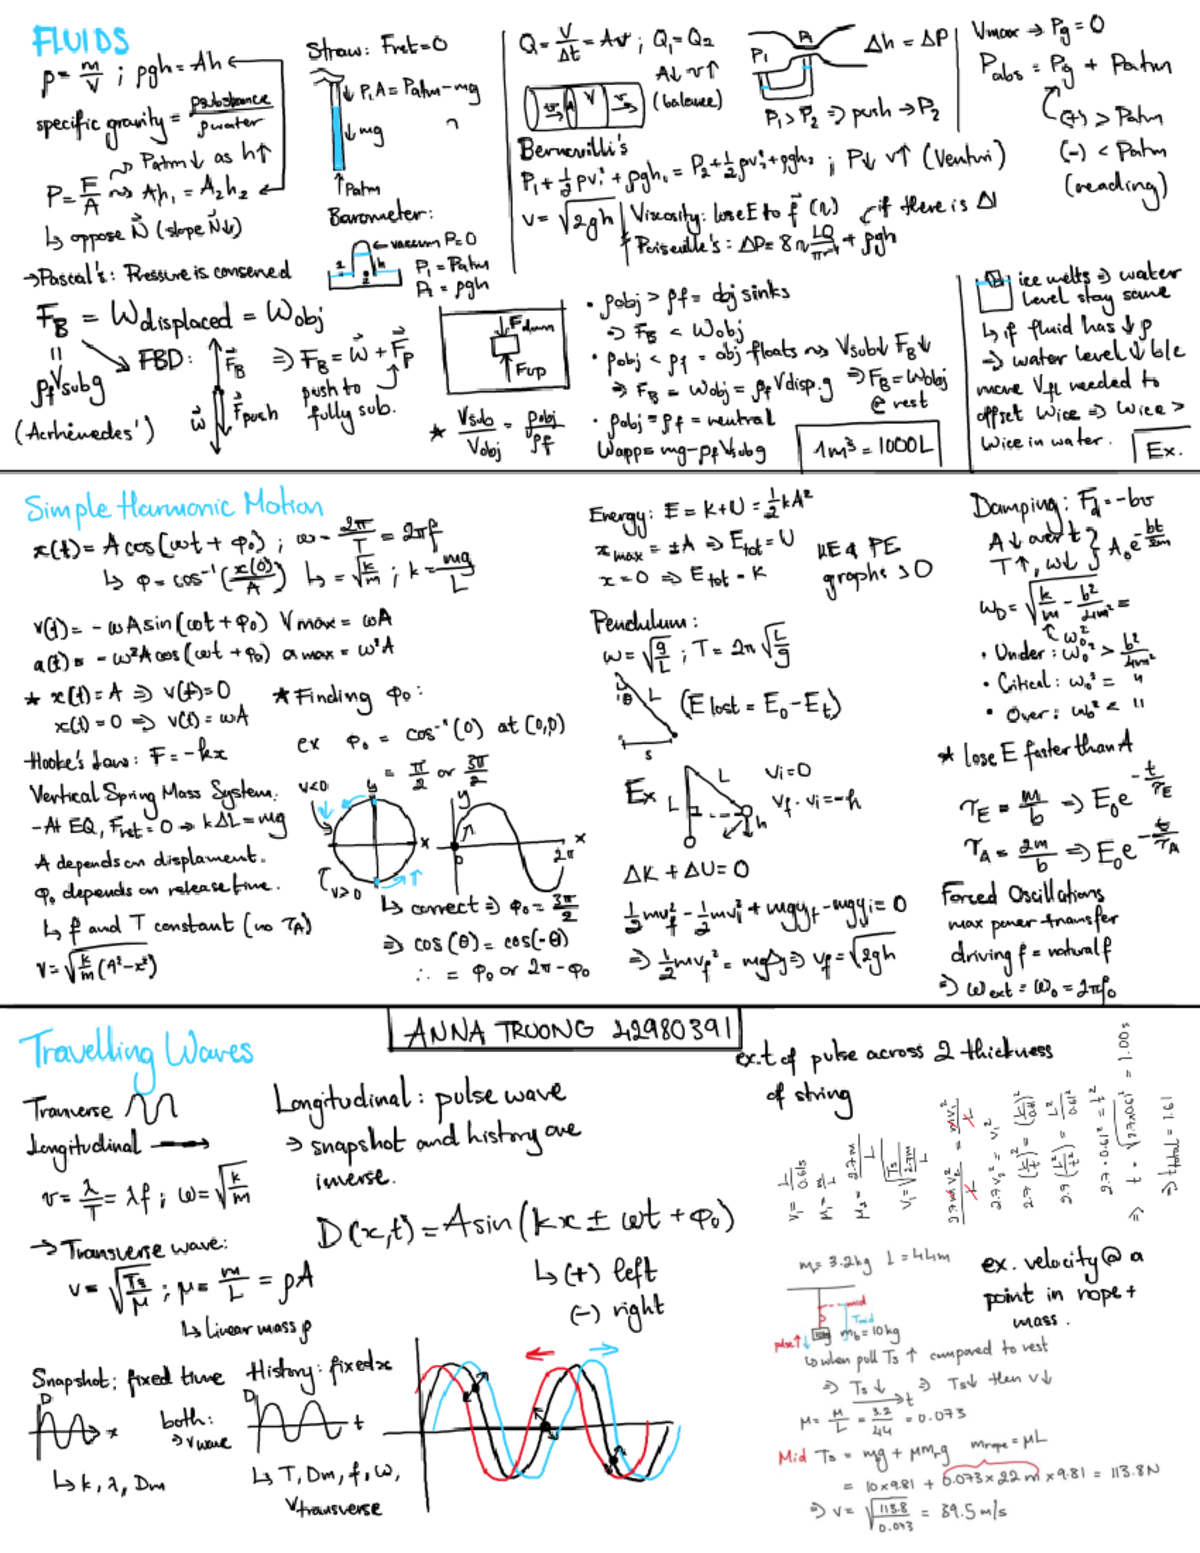 FLUIDS
ρ = m/V ; ρgh = Ah
specific gravity = ρsubstance/ρwater
↝ Patm↓ as h↑
P = F/A ↝ Ah₁ = A₂h₂
↳ oppose N⃗ (slope N⃗↓)
→ Pascal's: Pressure is conserved
Straw: Fnet = 0
↓P,A = Patm - mg
↓mg
↑Patm
Barometer:
← vaccum P=0
P₁ = Patm
P₂ = ρgh
F_B = Wdisplaced = Wobj
ρf Vsub g
(Acrhimedes')
FBD:
F⃗_B
w⃗
F⃗push
⇒ F⃗_B = w⃗ + F⃗p
push to
fully sub.
Q = V/Δt = Av ; Q₁ = Q₂
A↓ v↑
(balance)
P₁
P₂
Δh = ΔP
P₁ > P₂ ⇒ push → P₂
Bernouilli's
P₁ + ½ρv₁² + ρgh₁ = P₂ + ½ρv₂² + ρgh₂ ; P↓ v↑ (Venturi)
v = √2gh
Viscosity: lose E to f⃗ (η)
if there is Δl
Poiseuille's: ΔP = 8η LQ/πr⁴ + ρgh
Vmax → Pg = 0
Pabs = Pg + Patm
(+) > Patm
(-) < Patm
(reading)
Fdown
Fup
★ Vsub/Vobj = ρobj/ρf
• ρobj > ρf = obj sinks
⇒ F_B < Wobj
• ρobj < ρf = obj floats ↝ Vsub↓ F_B↓
⇒ F_B = Wobj = ρf Vdisp.g ⇒ F_B = Wobj
@ rest
• ρobj = ρf = neutral
Wapp = mg - ρf Vsub g
1m³ = 1000L
ice melts ⇒ water
level stay same
↳ if fluid has ↓ρ
⇒ water level ↓ b/c
more Vfl needed to
offset Wice ⇒ Wice >
Wice in water.
Ex.
Simple Harmonic Motion
x(t) = A cos(ωt + φ₀) ; ω = 2π/T = 2πf
↳ φ = cos⁻¹(x(0)/A) ↳ = √k/m ; k = mg/L
v(t) = -ωA sin(ωt + φ₀) Vmax = ωA
a(t) = -ω²A cos(ωt + φ₀) amax = ω²A
★ x(t) = A ⇒ v(t) = 0
x(t) = 0 ⇒ v(t) = ωA
Hooke's Law: F = -kx
Vertical Spring Mass System:
- At EQ, Fnet = 0 → kΔL = mg
A depends on displament.
φ₀ depends on release time.
↳ f and T constant (no τA)
v = √k/m (A² - x²)
★ Finding φ₀:
ex φ₀ = cos⁻¹(0) at (0,0)
= π/2 or 3π/2
v<0
y
x
v>0
y
x
0
2π
↳ correct ⇒ φ₀ = 3π/2
⇒ cos(θ) = cos(-θ)
∴ = φ₀ or 2π - φ₀
Energy: E = K + U = ½kA²
xmax = ±A ⇒ Etot = U
x = 0 ⇒ Etot = K
KE & PE
graphs > 0
Pendulum:
ω = √g/L ; T = 2π√L/g
θ
L
s
(E lost = E₀ - Et)
Ex
L
L
h
Vi = 0
Vf · Vi = -h
ΔK + ΔU = 0
½mvf² - ½mvi² + mgyf - mgyi = 0
⇒ ½mvf² = mgΔy ⇒ vf = √2gh
Damping: Fd = -bv
A↓ over t
T↑, ω↓
A₀e^(-bt/2m)
ωD = √k/m - b²/4m² =
ω₀²
• Under: ω₀² > b²/4m²
• Critical: ω₀² = "
• Over: ω₀² < "
★ lose E faster than A
τE = m/b ⇒ E₀e^(-t/τE)
τA = 2m/b ⇒ E₀e^(-t/τA)
Forced Oscillations
max power transfer
driving f = natural f
⇒ ωext = ω₀ = 2πf₀
ANNA TRUONG 42980391
Travelling Waves
Tranverse
Longitudinal
v = λ/T = λf ; ω = √k/m
→ Transverse wave:
v = √Ts/μ ; μ = m/L = ρA
↳ linear mass ρ
Snapshot: fixed time
D
x
↳ k, λ, Dm
both:
⇒ v wave
History: fixed x
D
t
↳ T, Dm, f, ω,
Vtransverse
Longitudinal: pulse wave
⇒ snapshot and history are
inverse.
D(x,t) = A sin(kx ± ωt + φ₀)
↳ (+) left
(-) right
ex. t of pulse across 2 thickness
of string
v₁ = L/0.61s
μ₁ = m/L
μ₂ = 2.7m/L
v₁ = √Ts/2.7m/L
2.7m v₂²/L = mv₁²/L
2.7v₂² = v₁²
2.7(L/t)² = (L/0.61)²
2.7(L²/t²) = L²/0.61²
2.7 · 0.61² = t²
⇒ t = √2.7×0.61² = 1.00s
⇒ t total = 1.61
m = 3.2kg L = 44m
mid
Tmid
pulse↑
mb = 10kg
ex. velocity @ a
point in rope +
mass.
↳ when pull Ts ↑ compared to rest
⇒ Ts↓ ⇒ Ts↓ then v↓
t
μ = M/L = 3.2/44 = 0.073
Mid Ts = mg + μmrg mrope = μL
= 10×9.81 + 0.073×22m×9.81 = 113.8N
⇒ v = √113.8/0.073 = 39.5m/s